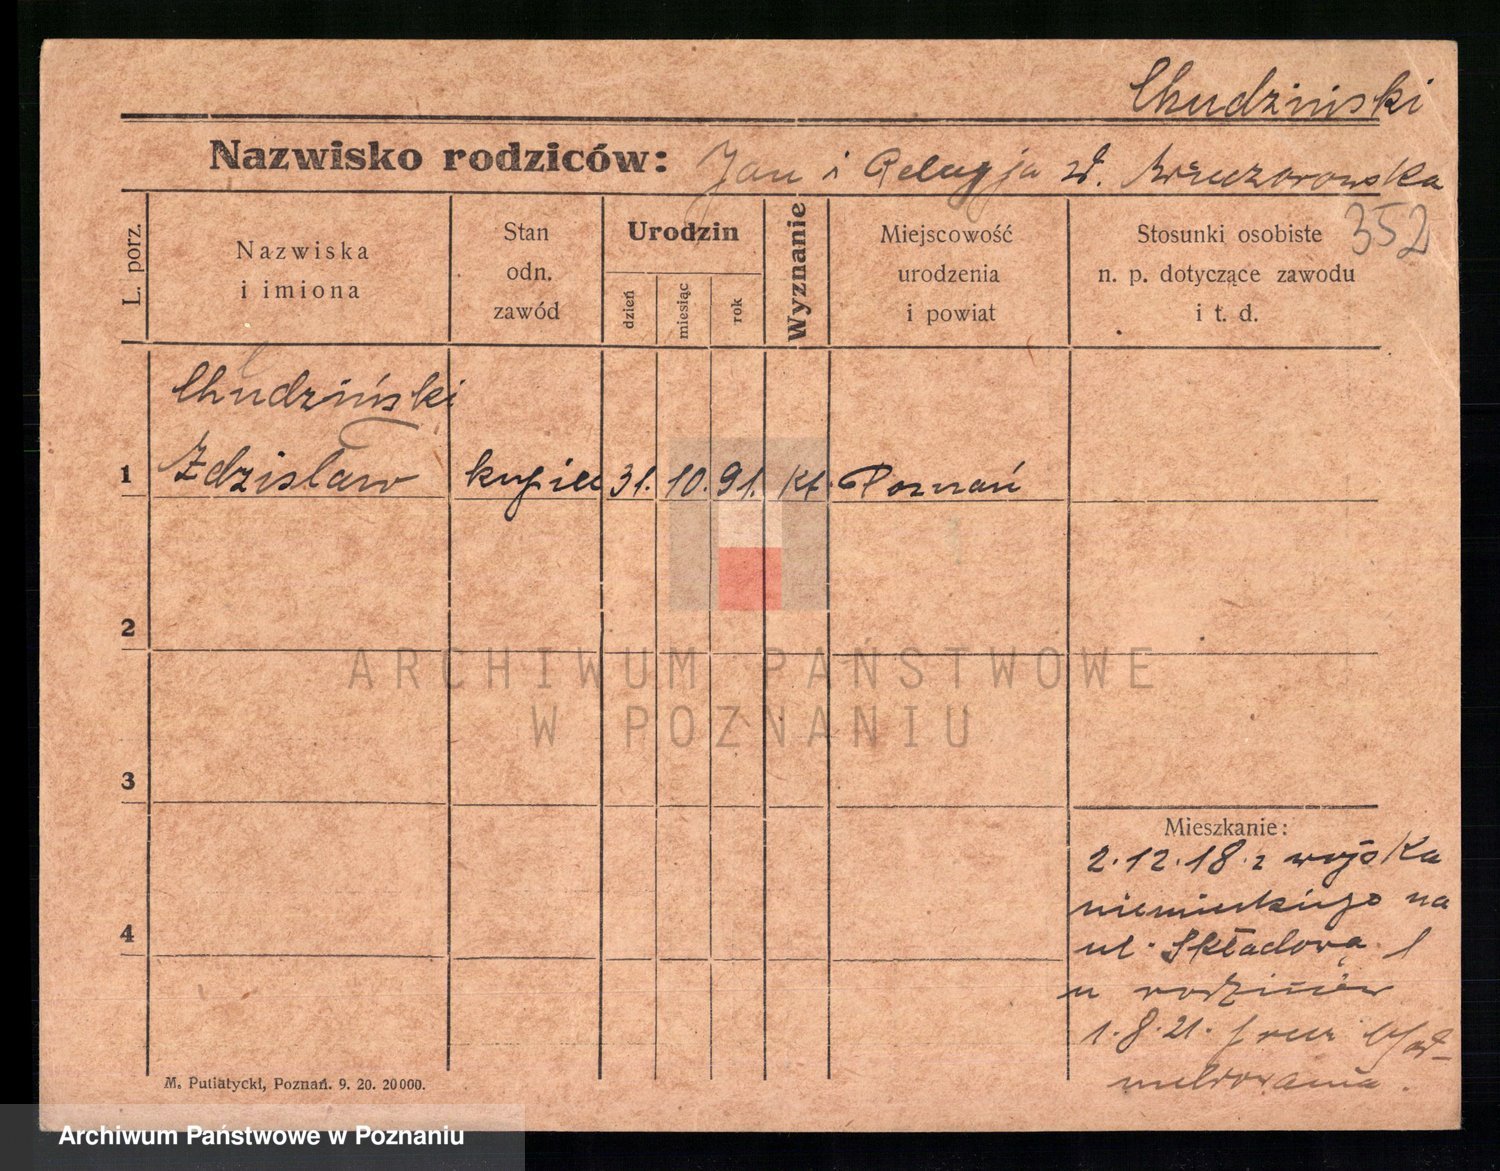 Chudziński
Nazwisko rodziców: Jan i Pelagja zd. Wieczorowska
352
L. porz.
Nazwiska
i imiona
Stan
odn.
zawód
Urodzin
dzień
miesiąc
rok
Wyznanie
Miejscowość
urodzenia
i powiat
Stosunki osobiste
n. p. dotyczące zawodu
i t. d.
Chudziński
1 Zdzisław kupiec 31. 10. 91. kt. Poznań
2
3
4
Mieszkanie:
2.12.18 z wojska
niemieckiego na
ul. Składową 1
u rodziców
1.8.21.
meldowania.
M. Putiatycki, Poznań. 9. 20. 20000.
ARCHIWUM PAŃSTWOWE
W POZNANIU
Archiwum Państwowe w Poznaniu